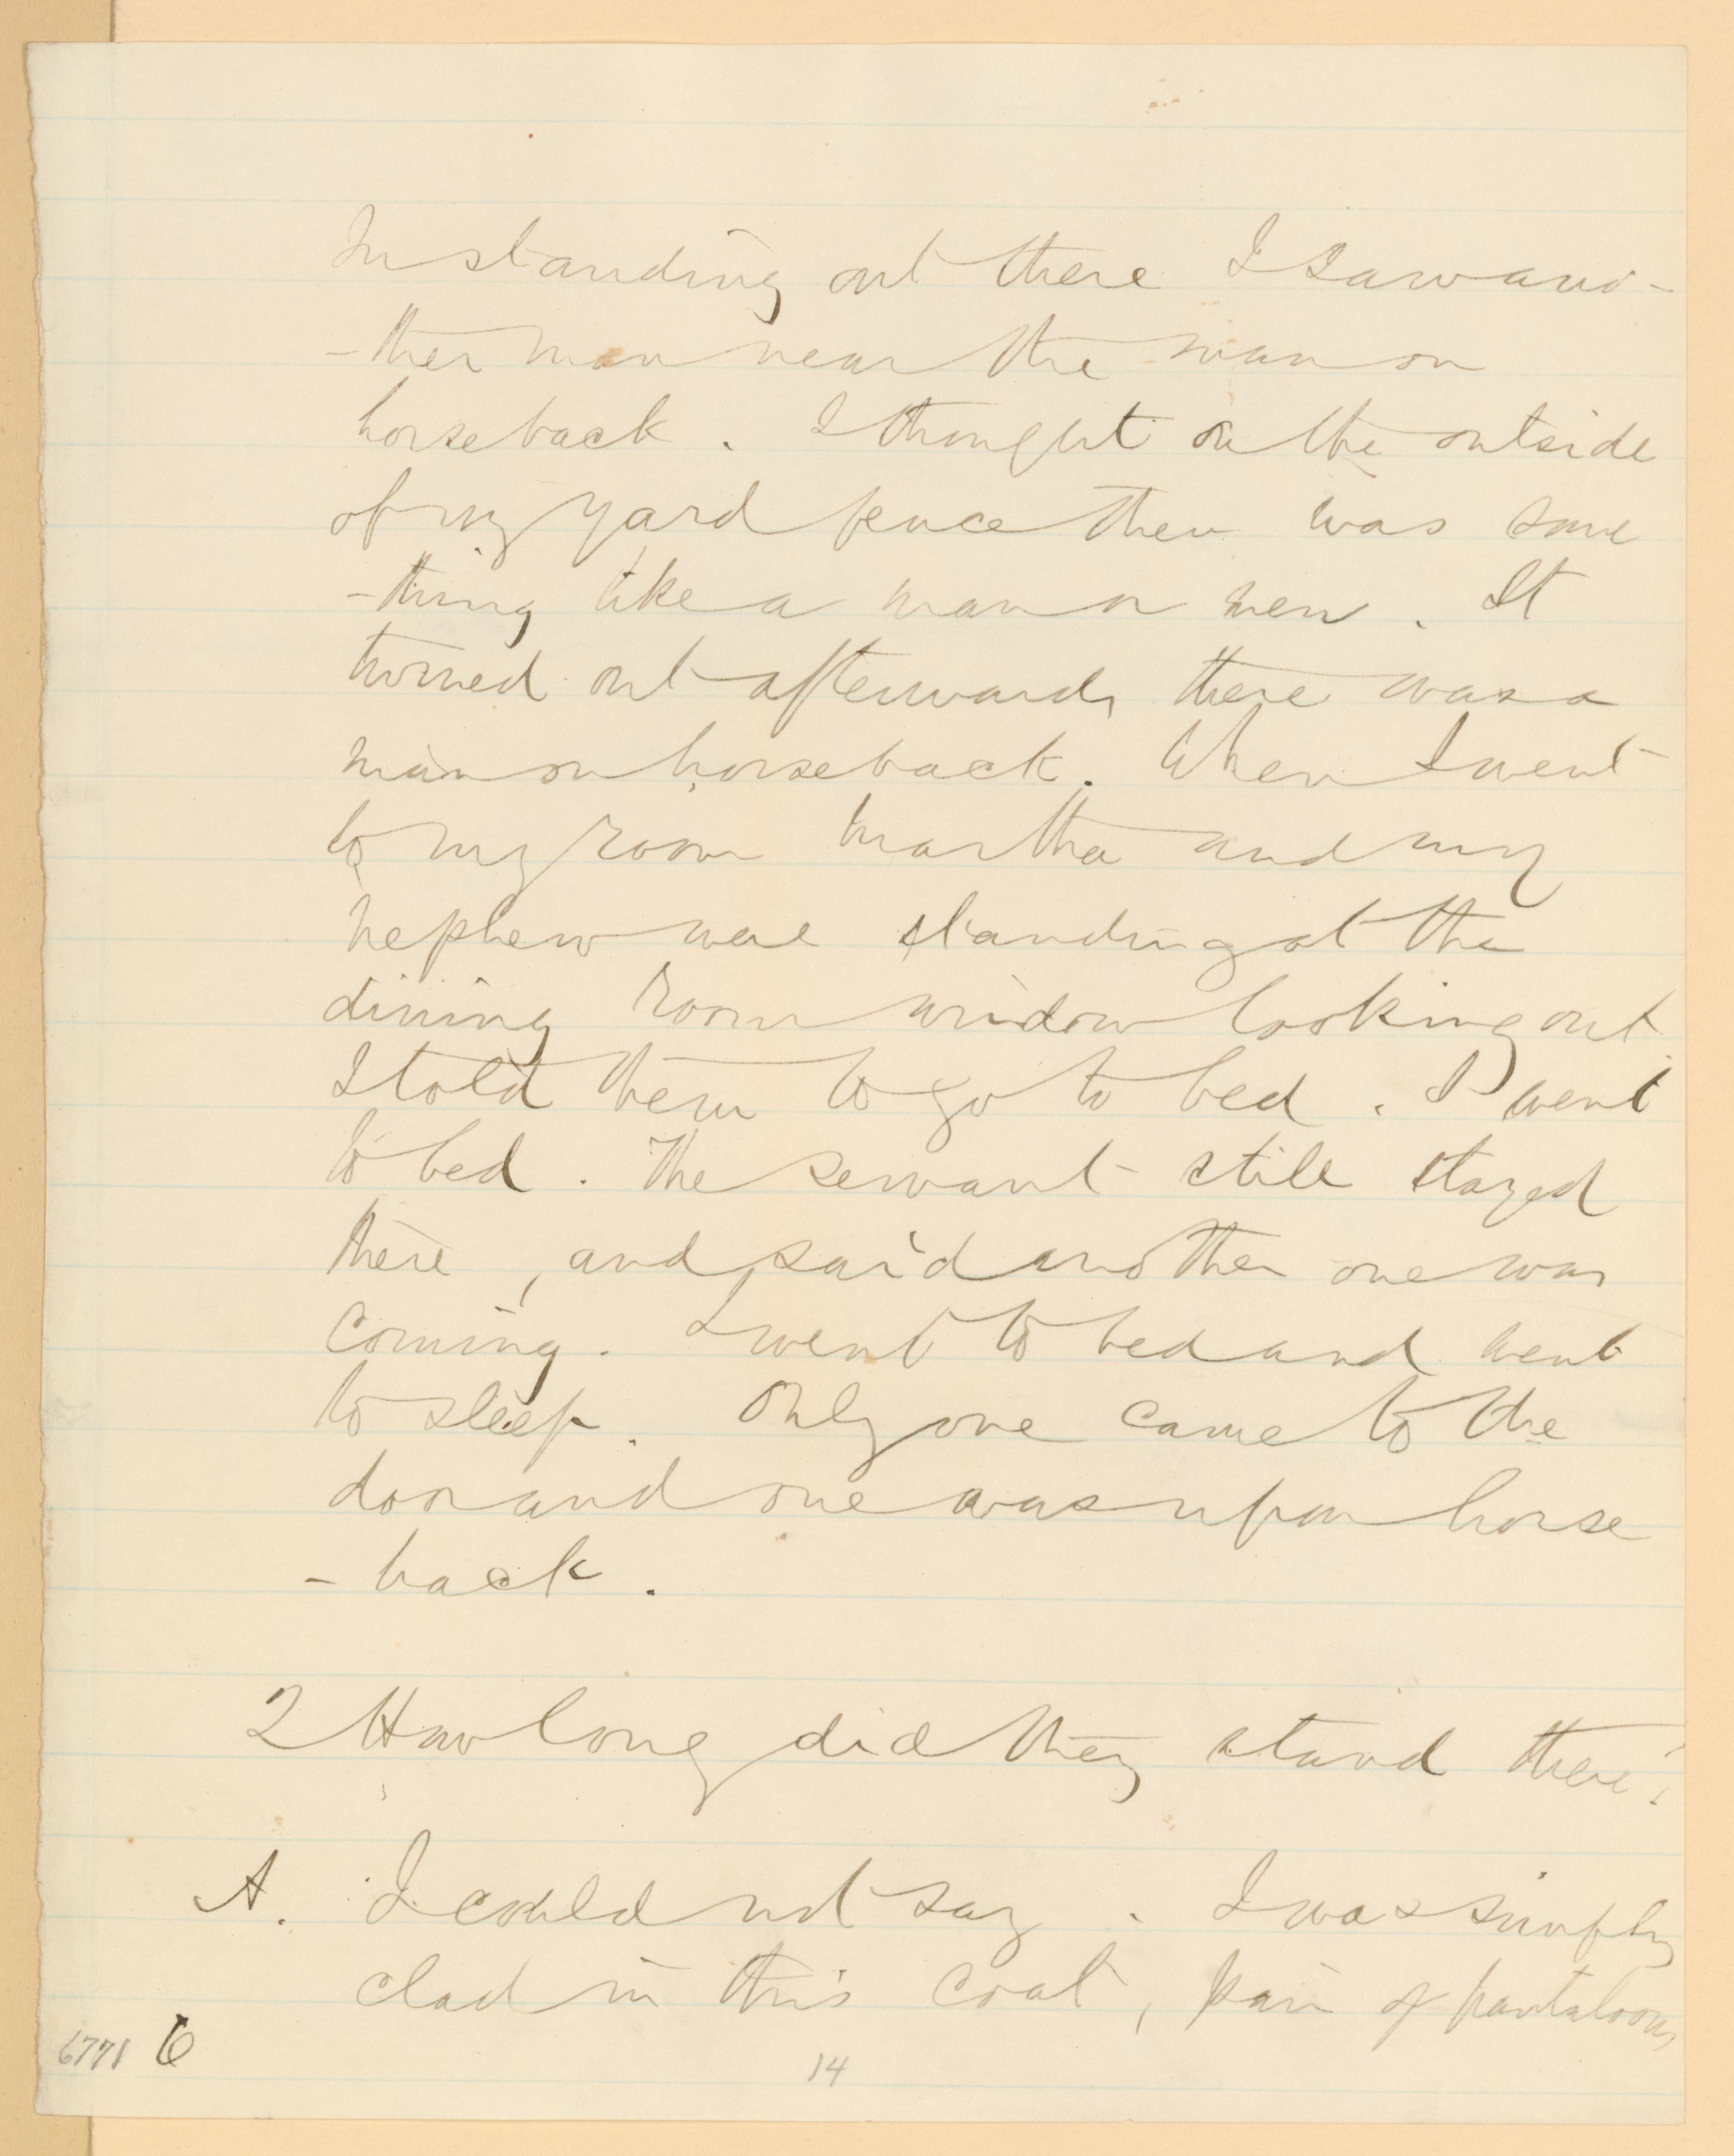 In standing out there I saw ano-
-ther man near the man on
horseback. I thought on the outside
of my yard fence there was some
-thing like a man or men. It
turned out afterwards there was a
man on horseback. When I went
to my room Martha and my
nephew were standing at the
dining room window looking out
I told them to go to bed. I went
to bed. The servant still stayed
there, and said another one was
coming. I went to bed and went
to sleep. Only one came to the
door and one was upon horse
-back.
Q How long did they stand there?
A. I could not say. I was simply
clad in this coat, pair of pantaloons,
6771 6
14